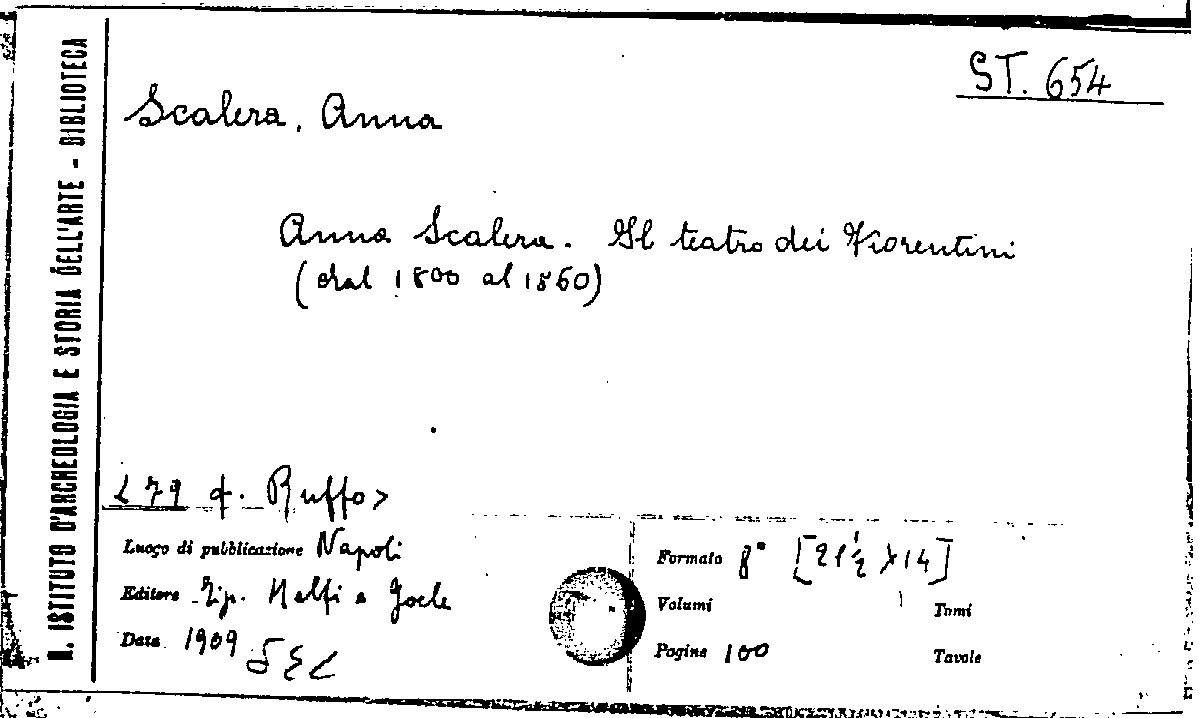 R. ISTITUTO D'ARCHEOLOGIA E STORIA DELL'ARTE - BIBLIOTECA
ST. 654
Scalera, Anna
Anna Scalera. Il teatro dei Fiorentini
(dal 1800 al 1860)
<79 f. Ruffo>
Luogo di pubblicazione Napoli
Editore Tip. Melfi e Joele
Data 1909
Formato 8° [21½ x 14]
Volumi
Tomi
Pagine 100
Tavole